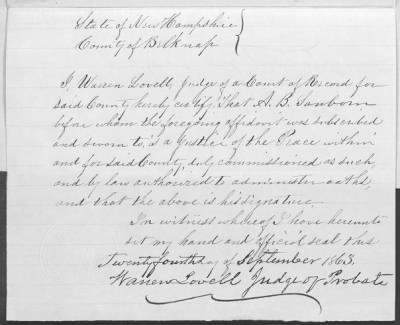 State of New Hampshire
County of Belknap
I, Warren Lovell, Judge of a Court of Record for
said County hereby certify, That A. B. Sanborn
before whom the foregoing affidavit was subscribed
and sworn to, is a Justice of the Peace within
and for said County, duly commissioned as such,
and by law authorized to administer oaths,
and that the above is his signature.
In witness whereof I have hereunto
set my hand and official seal this
Twenty fourth day of September 1863.
Warren Lovell Judge of Probate